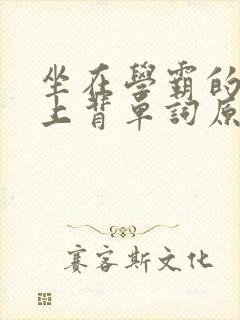 坐在學霸的
上背單詞原
賽客斯文化